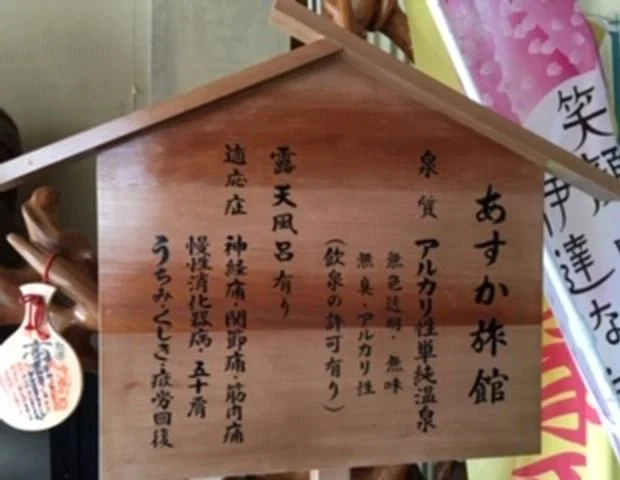 あすか旅館
泉質 アルカリ性単純温泉
無色透明・無味
無臭・アルカリ性
(飲泉の許可有り)
露天風呂有り
適応症 神経痛・関節痛・筋肉痛
慢性消化器病・五十肩
うちみ・くじき・疲労回復
笑顔
伊達な